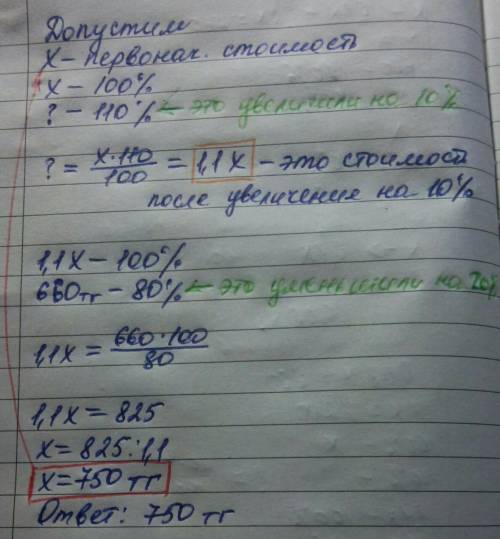 Допустим
х – первонач. стоимость
х – 100%
? – 110% ← это увеличили на 10%
? = х·110/100 = 1,1х – это стоимость
после увеличения на 10%
1,1х – 100%
660тг – 80% ← это уменьшили на 20%
1,1х = 660·100/80
1,1х = 825
х = 825:1,1
х = 750 тг
Ответ: 750 тг